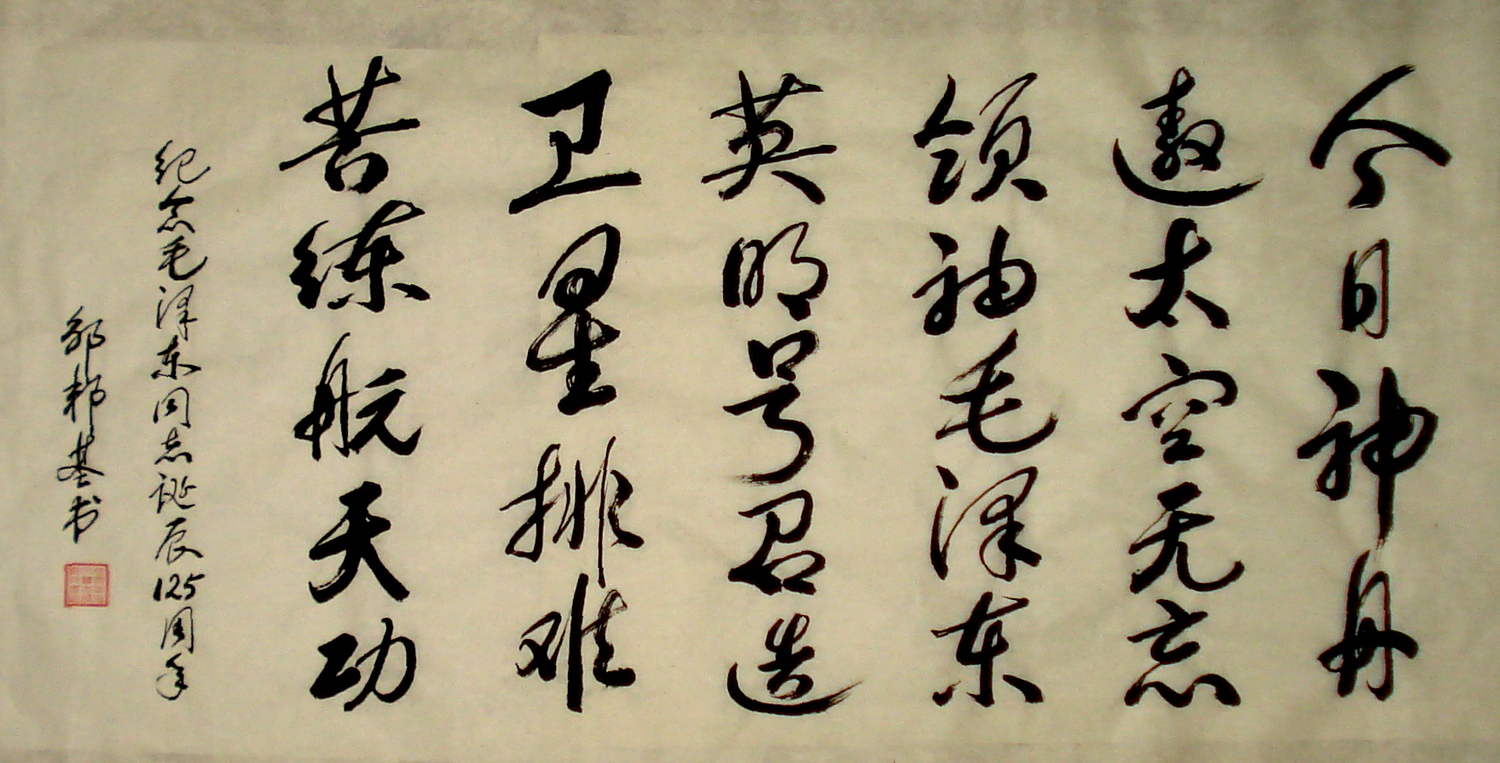 今日神舟
遨太空无忘
领袖毛泽东
英明号召造
卫星排难
苦练航天功
纪念毛泽东同志诞辰125周年
邹
基书